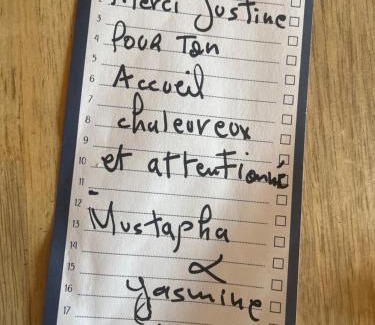 Merci Justine
3
4 Pour Ton
5
6 Accueil
7
8 chaleureux
9
10 et attentionné
11
12
13 Mustapha
14 &
15
16 Yasmine
17